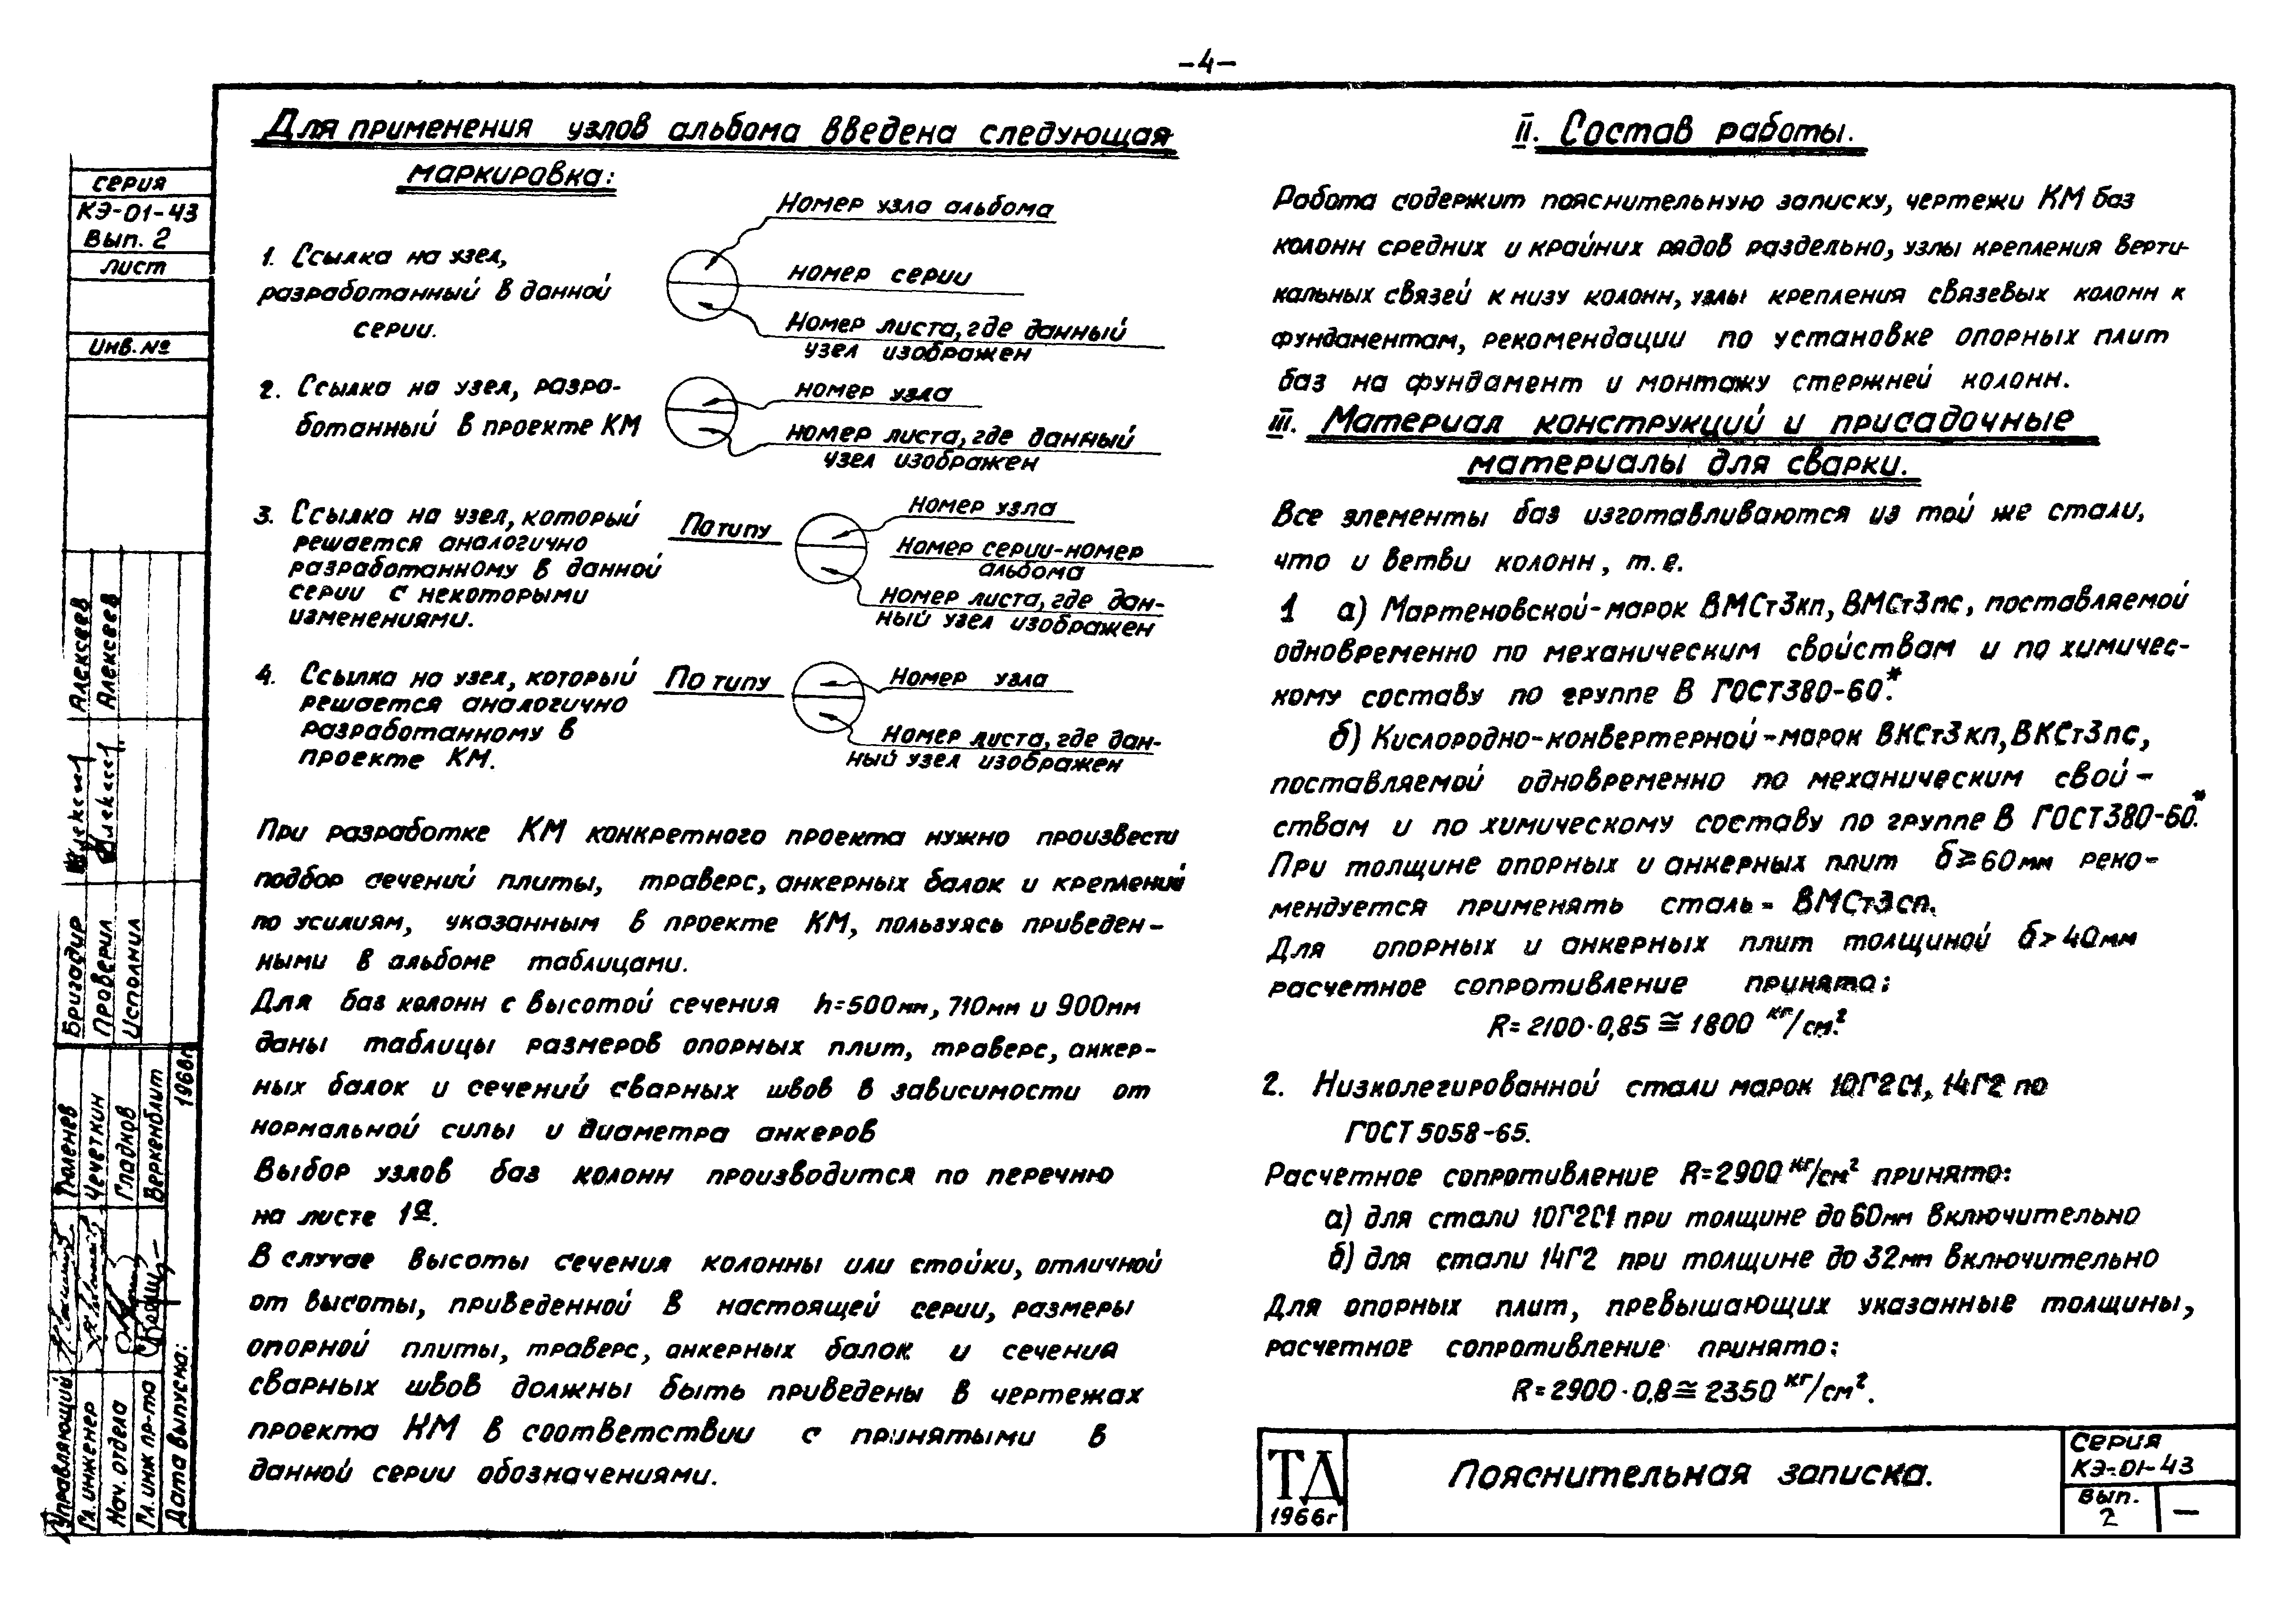 -4-
Для применения узлов альбома введена следующая
маркировка:
1. Ссылка на узел,
разработанный в данной
серии.
Номер узла альбома
номер серии
Номер листа, где данный
узел изображен
2. Ссылка на узел, разра-
ботанный в проекте КМ
номер узла
номер листа, где данный
узел изображен
3. Ссылка на узел, который
решается аналогично
разработанному в данной
серии с некоторыми
изменениями.
По типу
Номер узла
Номер серии-номер
альбома
Номер листа, где дан-
ный узел изображен
4. Ссылка на узел, который
решается аналогично
разработанному в
проекте КМ.
По типу
Номер узла
Номер листа, где дан-
ный узел изображен
При разработке КМ конкретного проекта нужно произвести
подбор сечений плиты, траверс, анкерных балок и креплений
по усилиям, указанным в проекте КМ, пользуясь приведен-
ными в альбоме таблицами.
Для баз колонн с высотой сечения h=500мм, 710мм и 900мм
даны таблицы размеров опорных плит, траверс, анкер-
ных балок и сечений сварных швов в зависимости от
нормальной силы и диаметра анкеров
Выбор узлов баз колонн производится по перечню
на листе 1а.
В случае высоты сечения колонны или стойки, отличной
от высоты, приведенной в настоящей серии, размеры
опорной плиты, траверс, анкерных балок и сечения
сварных швов должны быть приведены в чертежах
проекта КМ в соответствии с принятыми в
данной серии обозначениями.
II. Состав работы.
Работа содержит пояснительную записку, чертежи КМ баз
колонн средних и крайних рядов раздельно, узлы крепления верти-
кальных связей к низу колонн, узлы крепления связевых колонн к
фундаментам, рекомендации по установке опорных плит
баз на фундамент и монтажу стержней колонн.
III. Материал конструкций и присадочные
материалы для сварки.
Все элементы баз изготавливаются из той же стали,
что и ветви колонн, т.е.
1 а) Мартеновской-марок ВМСт3кп, ВМСт3пс, поставляемой
одновременно по механическим свойствам и по химичес-
кому составу по группе В ГОСТ380-60*.
б) Кислородно-конвертерной-марок ВКСт3кп, ВКСт3пс,
поставляемой одновременно по механическим свой-
ствам и по химическому составу по группе В ГОСТ380-60*.
При толщине опорных и анкерных плит δ≥60мм реко-
мендуется применять сталь- ВМСт3сп.
Для опорных и анкерных плит толщиной δ>40мм
расчетное сопротивление принято:
R=2100·0,85≅1800 кг/см².
2. Низколегированной стали марок 10Г2С1, 14Г2 по
ГОСТ 5058-65.
Расчетное сопротивление R=2900 кг/см² принято:
а) для стали 10Г2С1 при толщине до 60мм включительно
б) для стали 14Г2 при толщине до 32мм включительно
Для опорных плит, превышающих указанные толщины,
расчетное сопротивление принято:
R=2900·0,8≅2350 кг/см².
ТД
1966г
Пояснительная записка.
Серия
КЭ-01-43
Вып.
2
—
серия
КЭ-01-43
Вып. 2
лист
Инв. №
Бригадир Алексеев
Проверил Алексеев
Исполнил
Управляющий Тюленев
Гл. инженер Чечеткин
Нач. отдела Гладков
Гл. инж пр-та Веркенблит
Дата выпуска: 1966г.